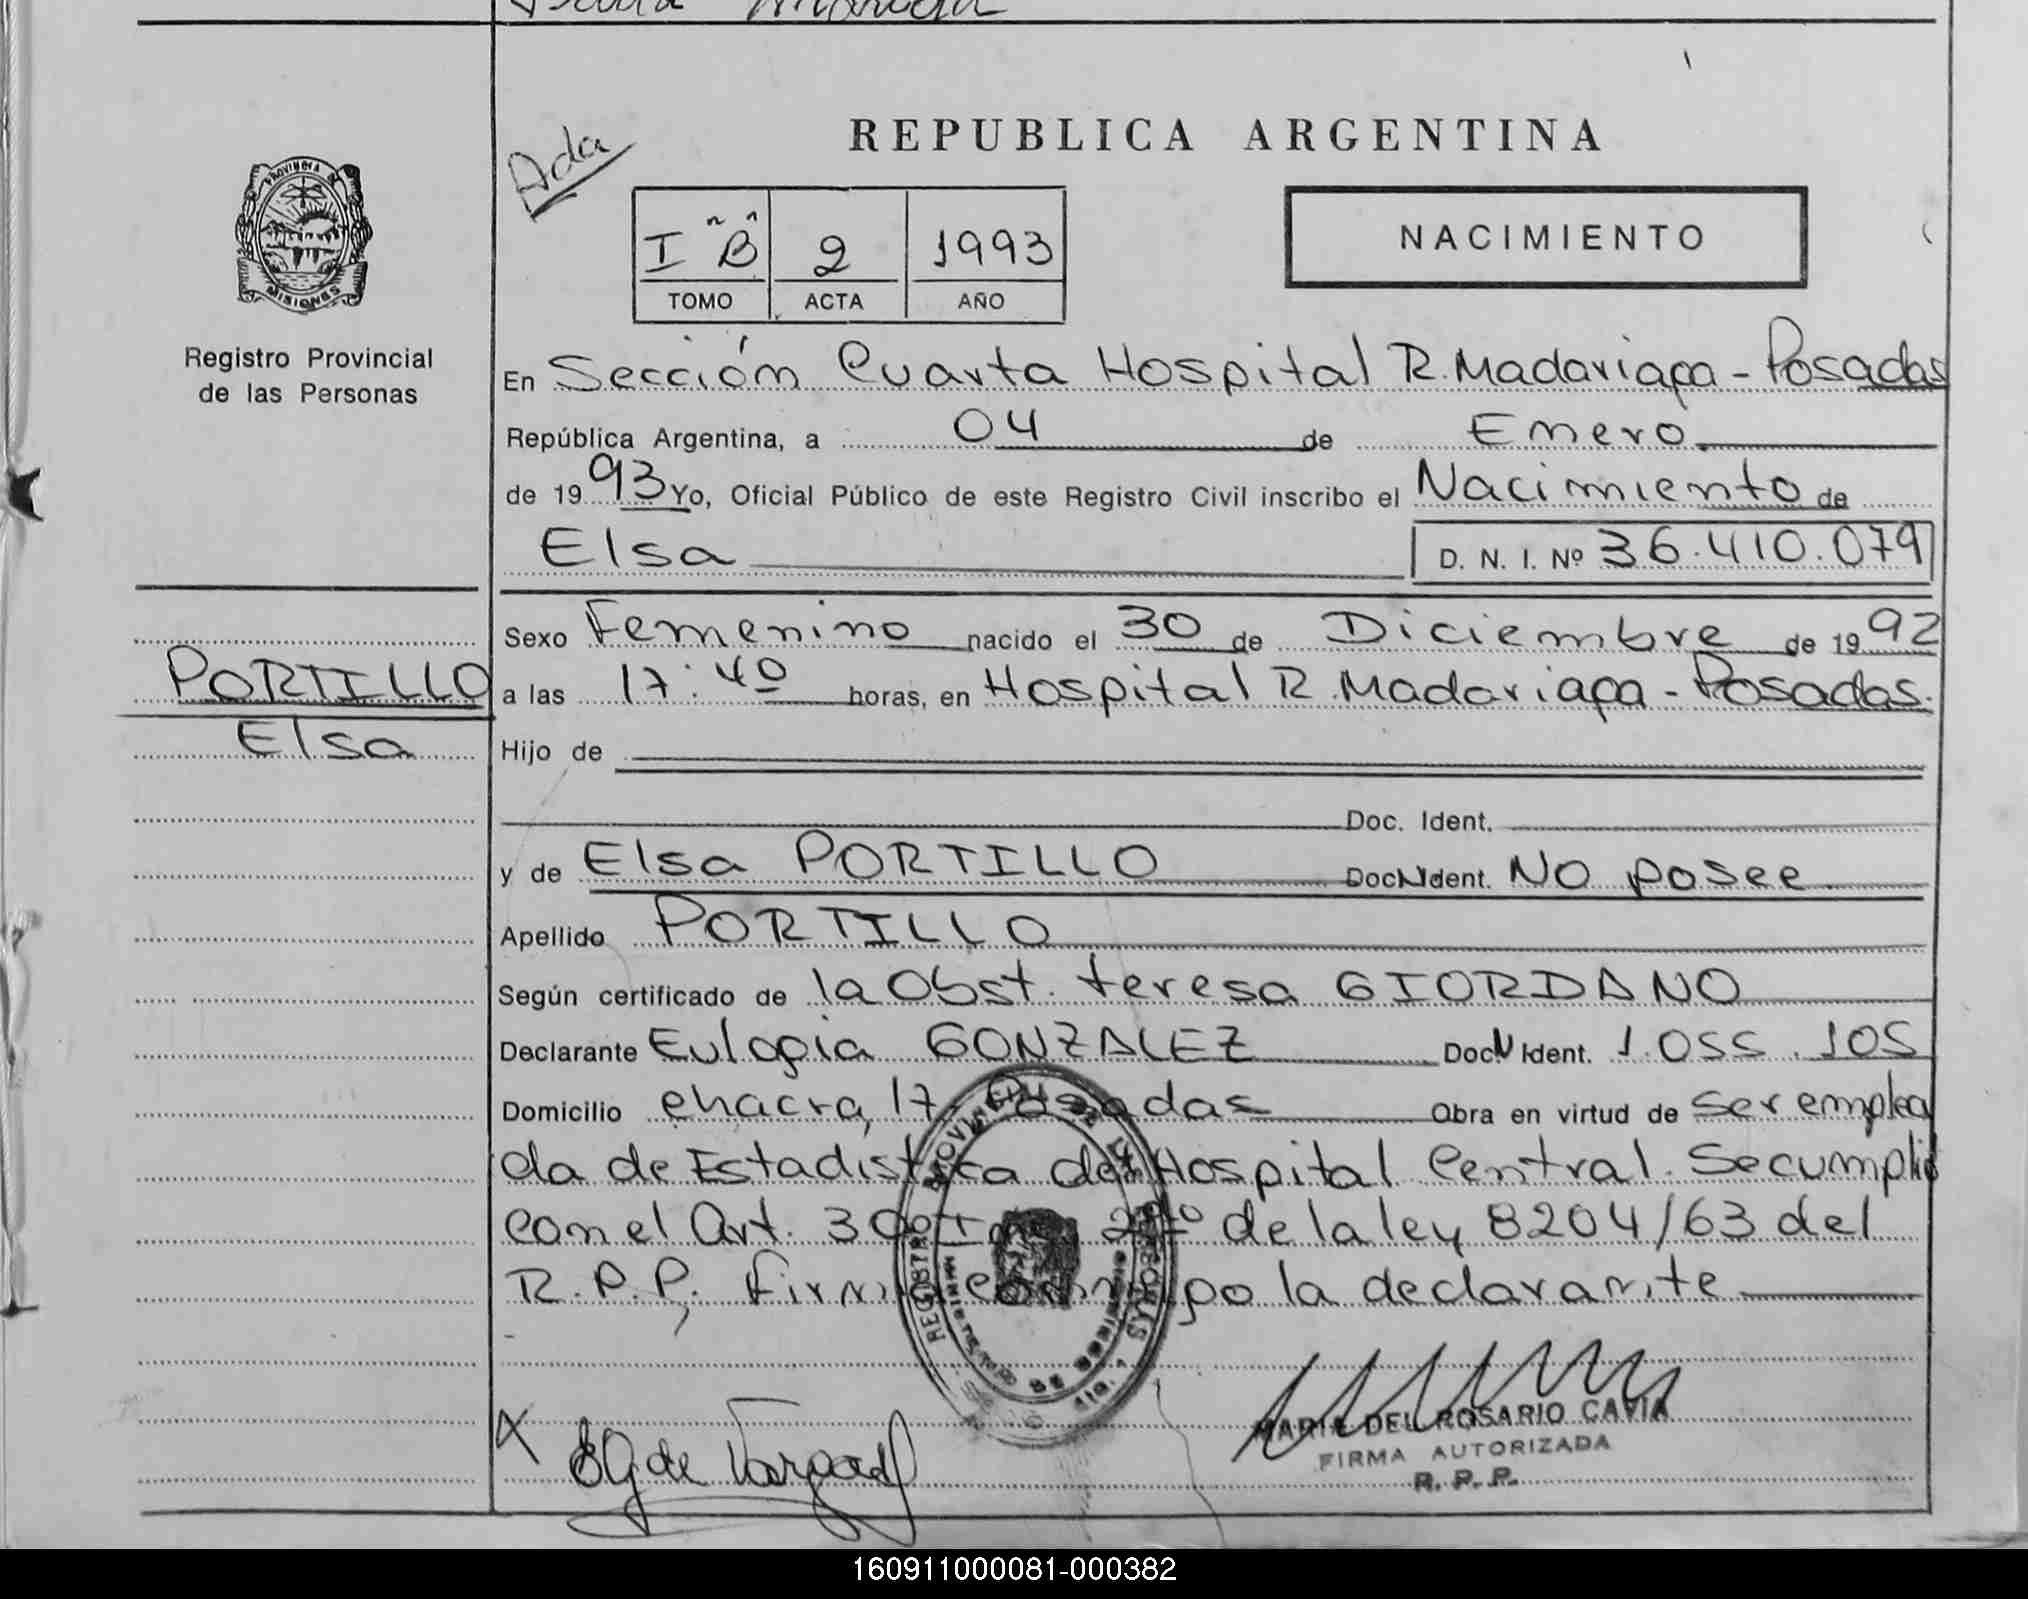 Ada
REPUBLICA ARGENTINA
PROVINCIA DE
MISIONES
I "B" 2 1993
TOMO ACTA AÑO
NACIMIENTO
Registro Provincial
de las Personas
En Sección Cuarta Hospital R. Madariaga - Posadas
República Argentina, a 04 de Enero
de 1993 Yo, Oficial Público de este Registro Civil inscribo el Nacimiento de
Elsa D. N. I. Nº 36.410.079
Sexo Femenino nacido el 30 de Diciembre de 1992
PORTILLO
a las 17:40 horas, en Hospital R. Madariaga - Posadas.
Elsa
Hijo de
Doc. Ident.
y de Elsa PORTILLO Doc N Ident. No posee
Apellido PORTILLO
Según certificado de la Obst. teresa GIORDANO
Declarante Eulogia GONZALEZ Doc N Ident. 1.055.105
Domicilio chacra, 17 Posadas Obra en virtud de ser emplea
da de Estadistica del Hospital Central. Se cumplió
con el Art. 30 de la ley 8204/63 del
R.P.P; firma conmigo la declarante
EG de Vargas
MARIA DEL ROSARIO CAVIA
FIRMA AUTORIZADA
R. P. P.
160911000081-000382